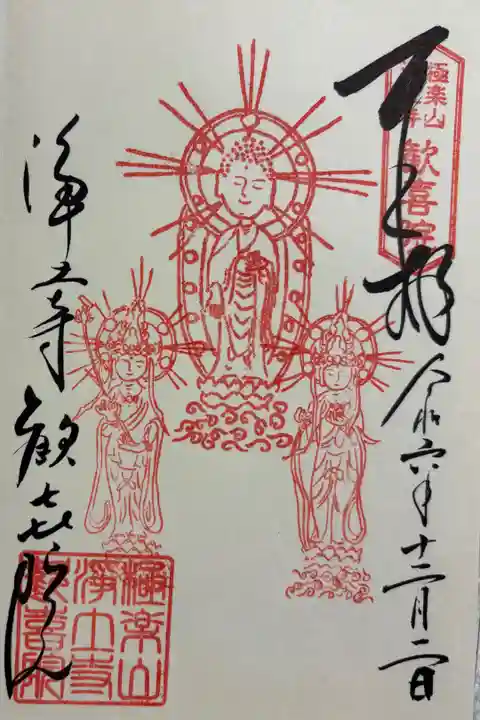 極楽山
浄土寺
歓喜院
令和六年十二月二日
浄土寺 歓喜院
極楽山
浄土寺
歓喜院